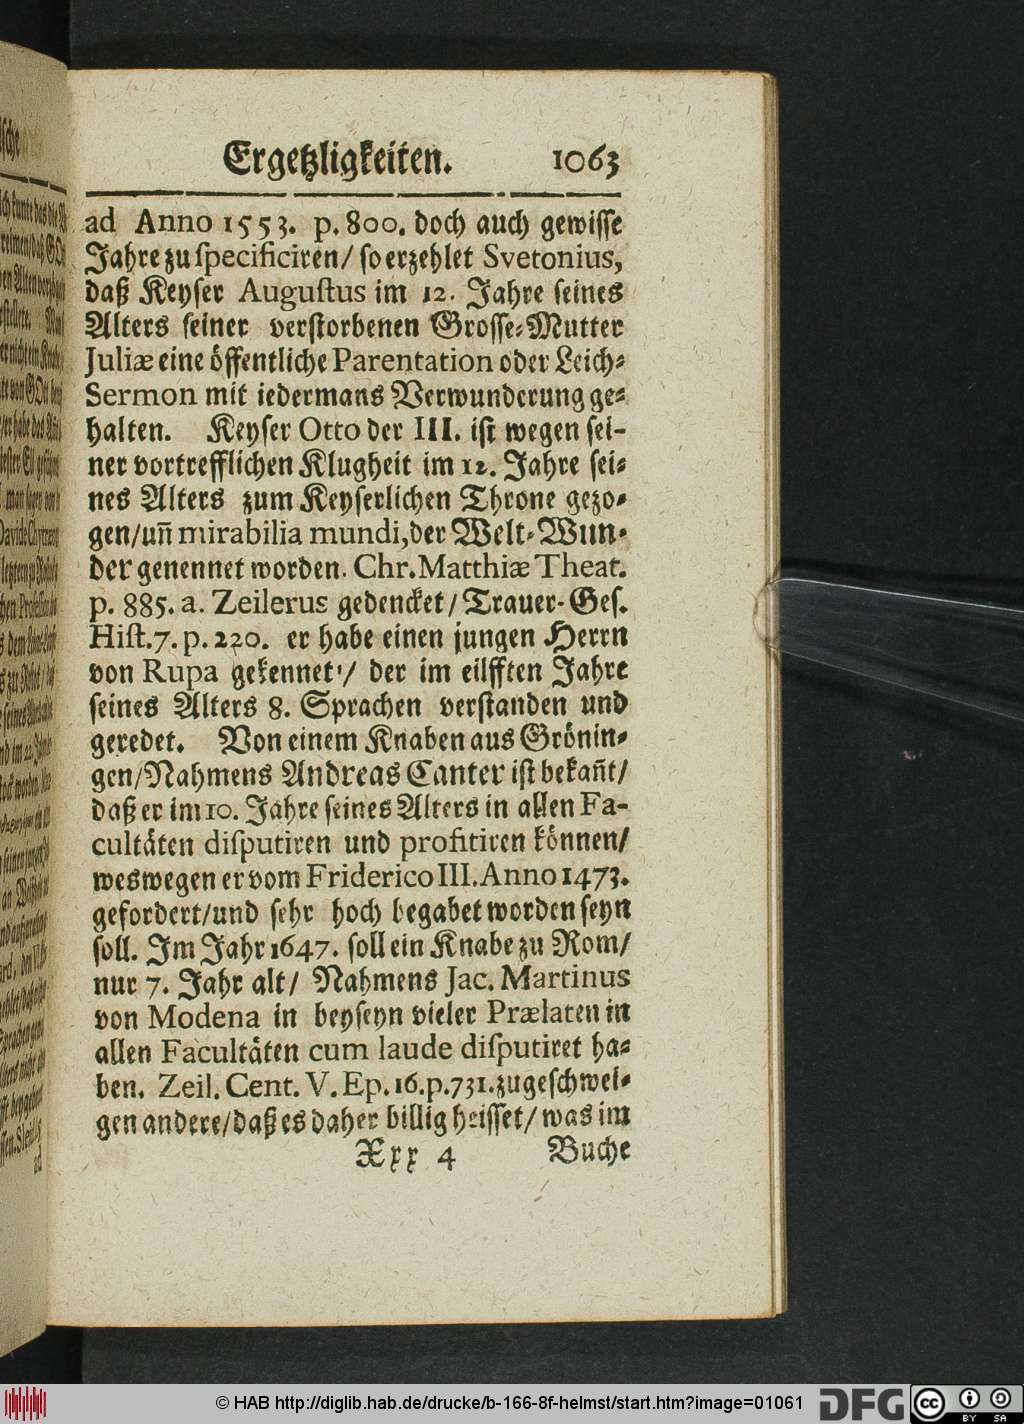 Ergetzligkeiten. 1063
ad Anno 1553. p. 800. doch auch gewisse
Jahre zu specificiren/ so erzehlet Svetonius,
daß Keyser Augustus im 12. Jahre seines
Alters seiner verstorbenen Grosse-Mutter
Juliæ eine öffentliche Parentation oder Leich-
Sermon mit iedermans Verwunderung ge-
halten. Keyser Otto der III. ist wegen sei-
ner vortrefflichen Klugheit im 12. Jahre sei-
nes Alters zum Keyserlichen Throne gezo-
gen/ uñ mirabilia mundi, der Welt-Wun-
der genennet worden. Chr. Matthiæ Theat.
p. 885. a. Zeilerus gedencket/ Trauer-Ges.
Hist. 7. p. 220. er habe einen jungen Herrn
von Rupa gekennet/ der im eilfften Jahre
seines Alters 8. Sprachen verstanden und
geredet. Von einem Knaben aus Grönin-
gen/ Nahmens Andreas Canter ist bekañt/
daß er im 10. Jahre seines Alters in allen Fa-
cultäten disputiren und profitiren können/
weswegen er vom Friderico III. Anno 1473.
gefordert/ und sehr hoch begabet worden seyn
soll. Im Jahr 1647. soll ein Knabe zu Rom/
nur 7. Jahr alt/ Nahmens Jac. Martinus
von Modena in beyseyn vieler Prælaten in
allen Facultäten cum laude disputiret ha-
ben. Zeil. Cent. V. Ep. 16. p. 731. zugeschwei-
gen andere/ daß es daher billig heisset/ was im
Xxx 4 Buche
© HAB http://diglib.hab.de/drucke/b-166-8f-helmst/start.htm?image=01061
DFG
cc BY SA